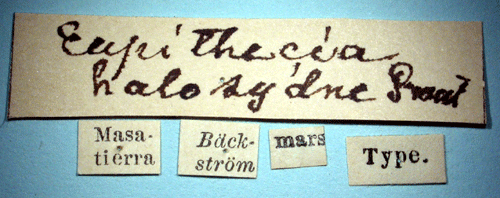 Eupithecia
halosydne Prout
Masa-
tierra
Bäck-
ström
mars
Type.